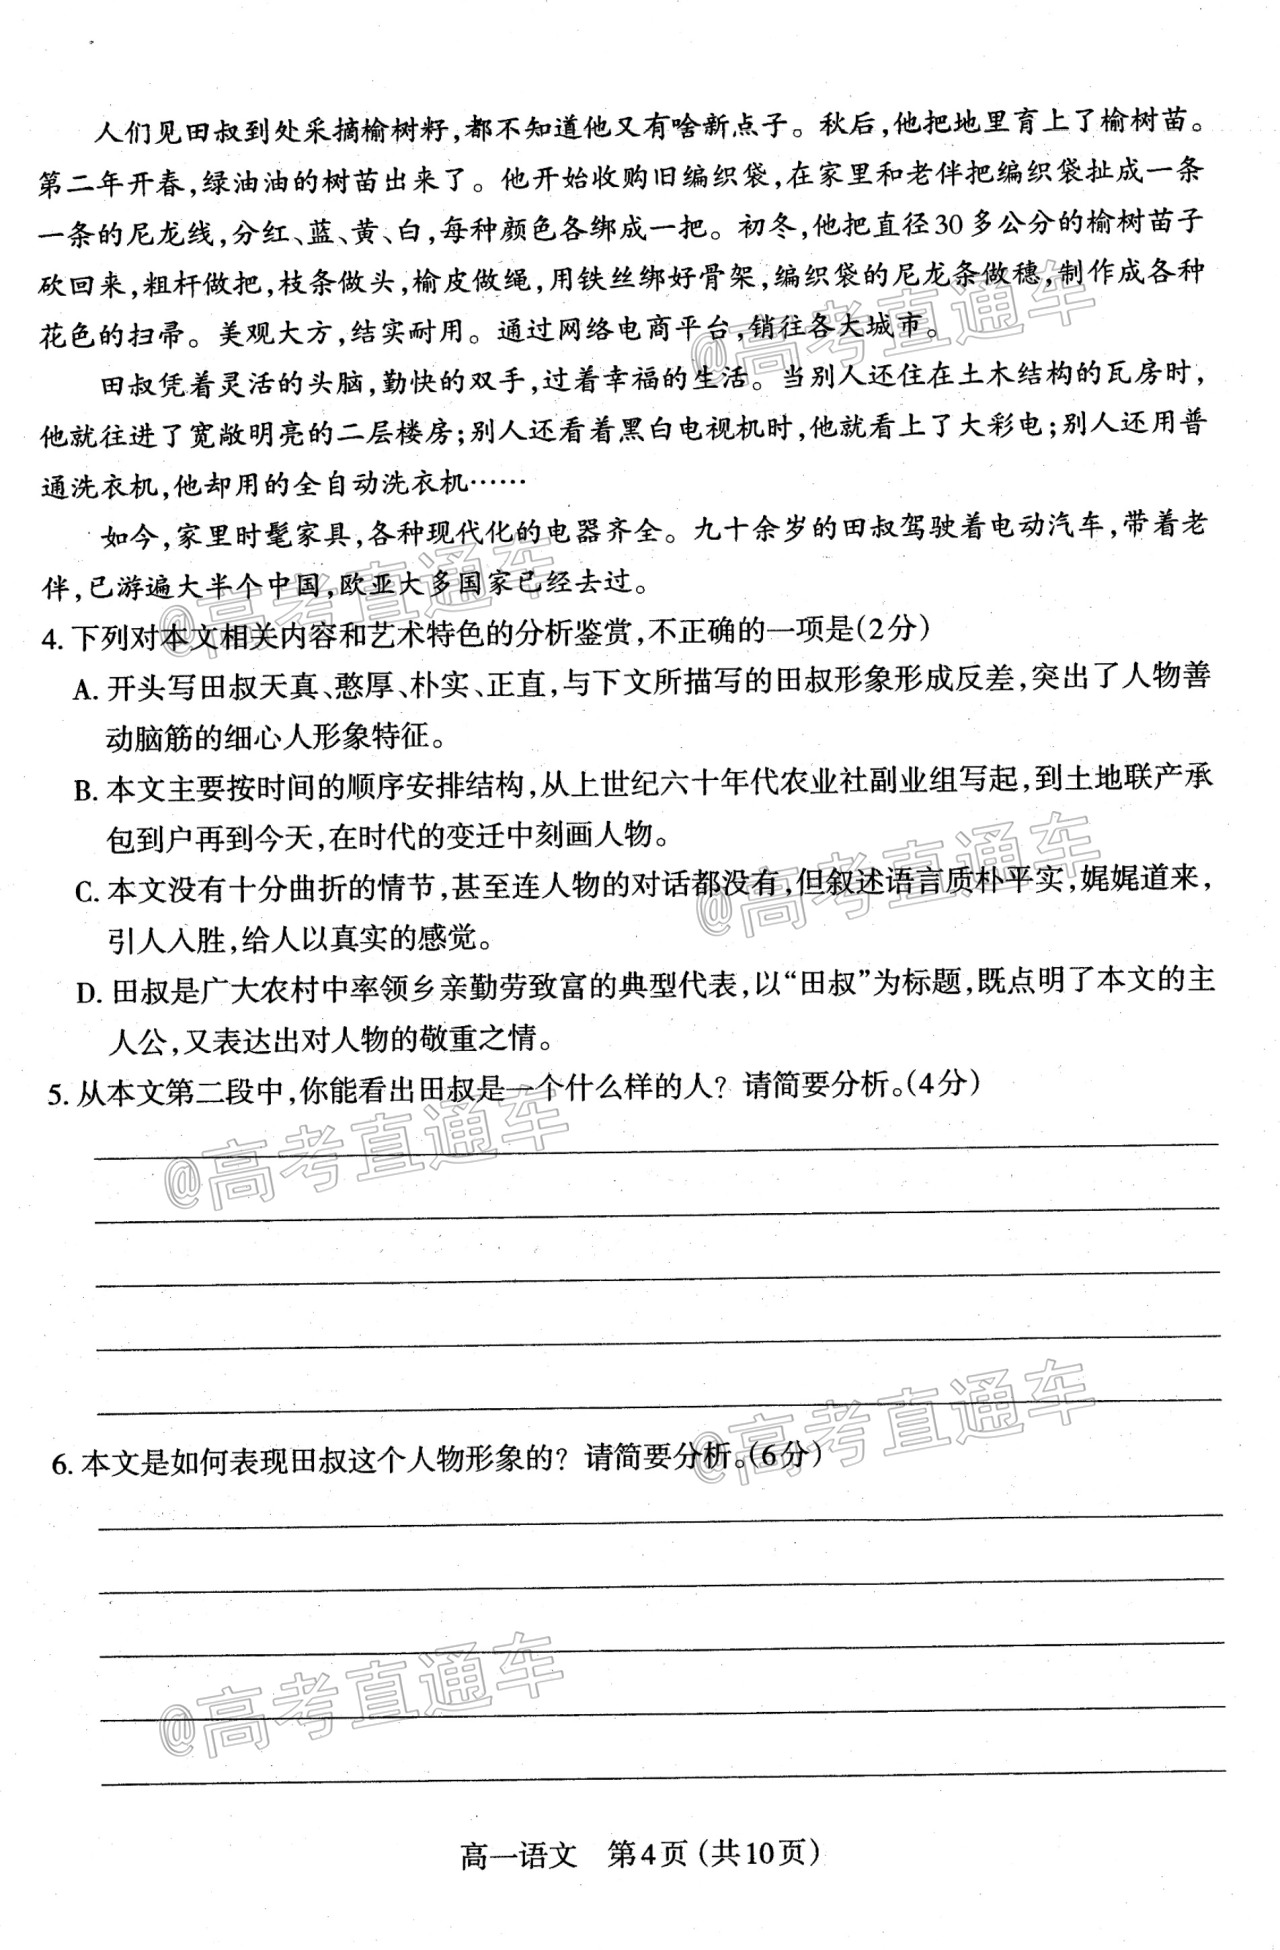 人们见田叔到处采摘榆树籽,都不知道他又有啥新点子。秋后,他把地里育上了榆树苗。
第二年开春,绿油油的树苗出来了。他开始收购旧编织袋,在家里和老伴把编织袋扯成一条
一条的尼龙线,分红、蓝、黄、白,每种颜色各绑成一把。初冬,他把直径30多公分的榆树苗子
砍回来,粗杆做把,枝条做头,榆皮做绳,用铁丝绑好骨架,编织袋的尼龙条做穗,制作成各种
花色的扫帚。美观大方,结实耐用。通过网络电商平台,销往各大城市。
田叔凭着灵活的头脑,勤快的双手,过着幸福的生活。当别人还住在土木结构的瓦房时,
他就往进了宽敞明亮的二层楼房;别人还看着黑白电视机时,他就看上了大彩电;别人还用普
通洗衣机,他却用的全自动洗衣机……
如今,家里时髦家具,各种现代化的电器齐全。九十余岁的田叔驾驶着电动汽车,带着老
伴,已游遍大半个中国,欧亚大多国家已经去过。
4. 下列对本文相关内容和艺术特色的分析鉴赏,不正确的一项是(2分)
A. 开头写田叔天真、憨厚、朴实、正直,与下文所描写的田叔形象形成反差,突出了人物善
动脑筋的细心人形象特征。
B. 本文主要按时间的顺序安排结构,从上世纪六十年代农业社副业组写起,到土地联产承
包到户再到今天,在时代的变迁中刻画人物。
C. 本文没有十分曲折的情节,甚至连人物的对话都没有,但叙述语言质朴平实,娓娓道来,
引人入胜,给人以真实的感觉。
D. 田叔是广大农村中率领乡亲勤劳致富的典型代表,以“田叔”为标题,既点明了本文的主
人公,又表达出对人物的敬重之情。
5. 从本文第二段中,你能看出田叔是一个什么样的人？请简要分析。(4分)
6. 本文是如何表现田叔这个人物形象的？请简要分析。(6分)
高一语文 第4页(共10页)
@高考直通车
@高考直通车
@高考直通车
@高考直通车
@高考直通车
@高考直通车